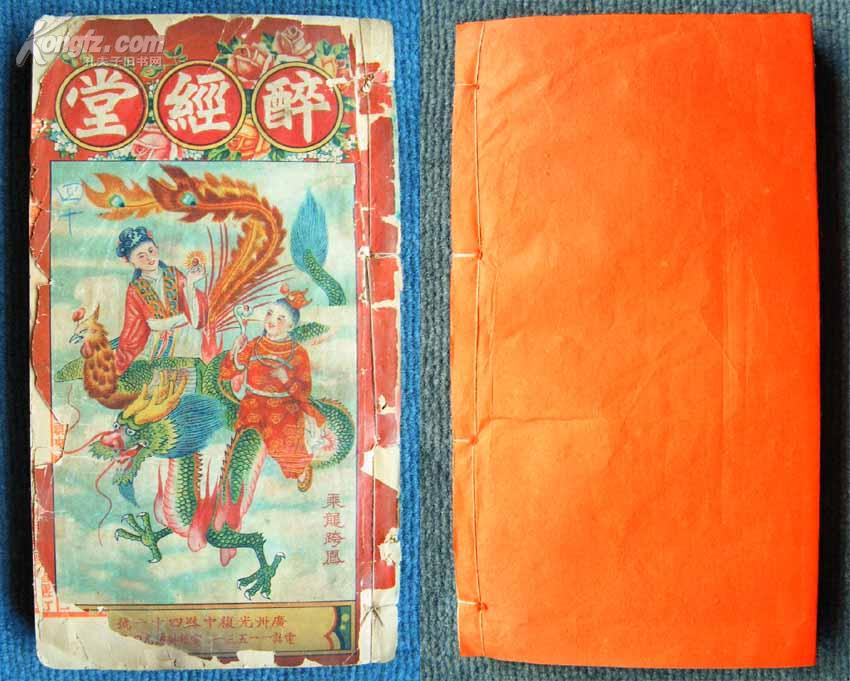 Kongfz.com
孔夫子旧书网
醉經堂
四十
乘龍跨鳳
廣州光復中路四十一號
電話一一五三一